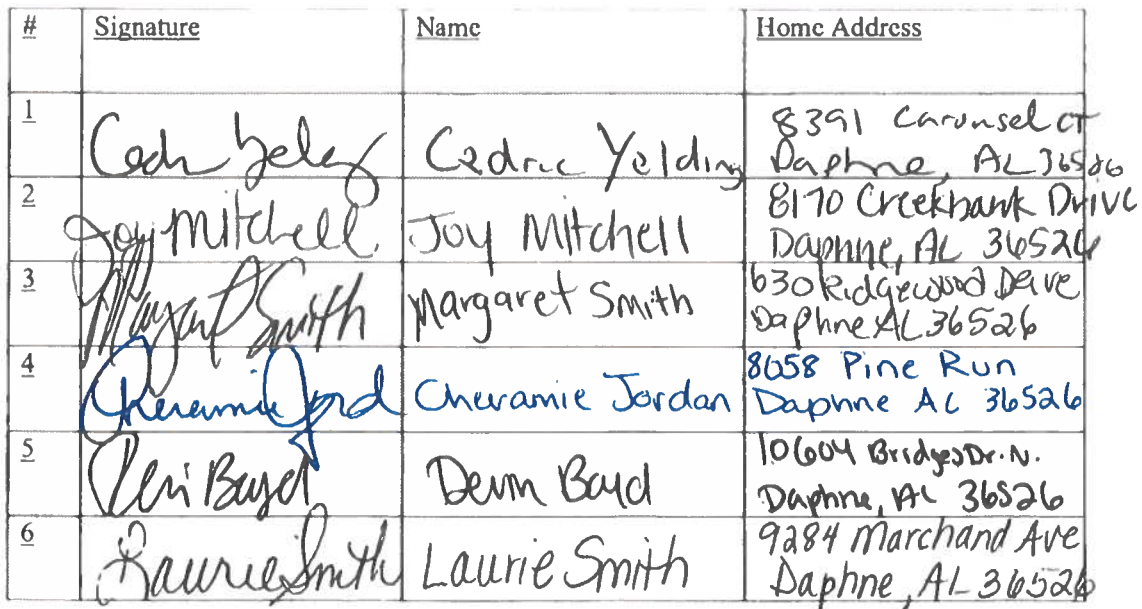 # Signature Name Home Address
1 Cedric Yelding 8391 Carousel CT
Daphne, AL 36526
2 Joy Mitchell Joy Mitchell 8170 Creekbank Drive
Daphne, AL 36526
3 Margaret Smith Margaret Smith 630 Ridgewood Drive
Daphne AL 36526
4 Cheramie Jord Cheramie Jordan 8058 Pine Run
Daphne AL 36526
5 Boyd 10604 Bridges Dr. N.
Daphne, AL 36526
6 Laurie Smith Laurie Smith 9284 Marchand Ave
Daphne, AL 36526